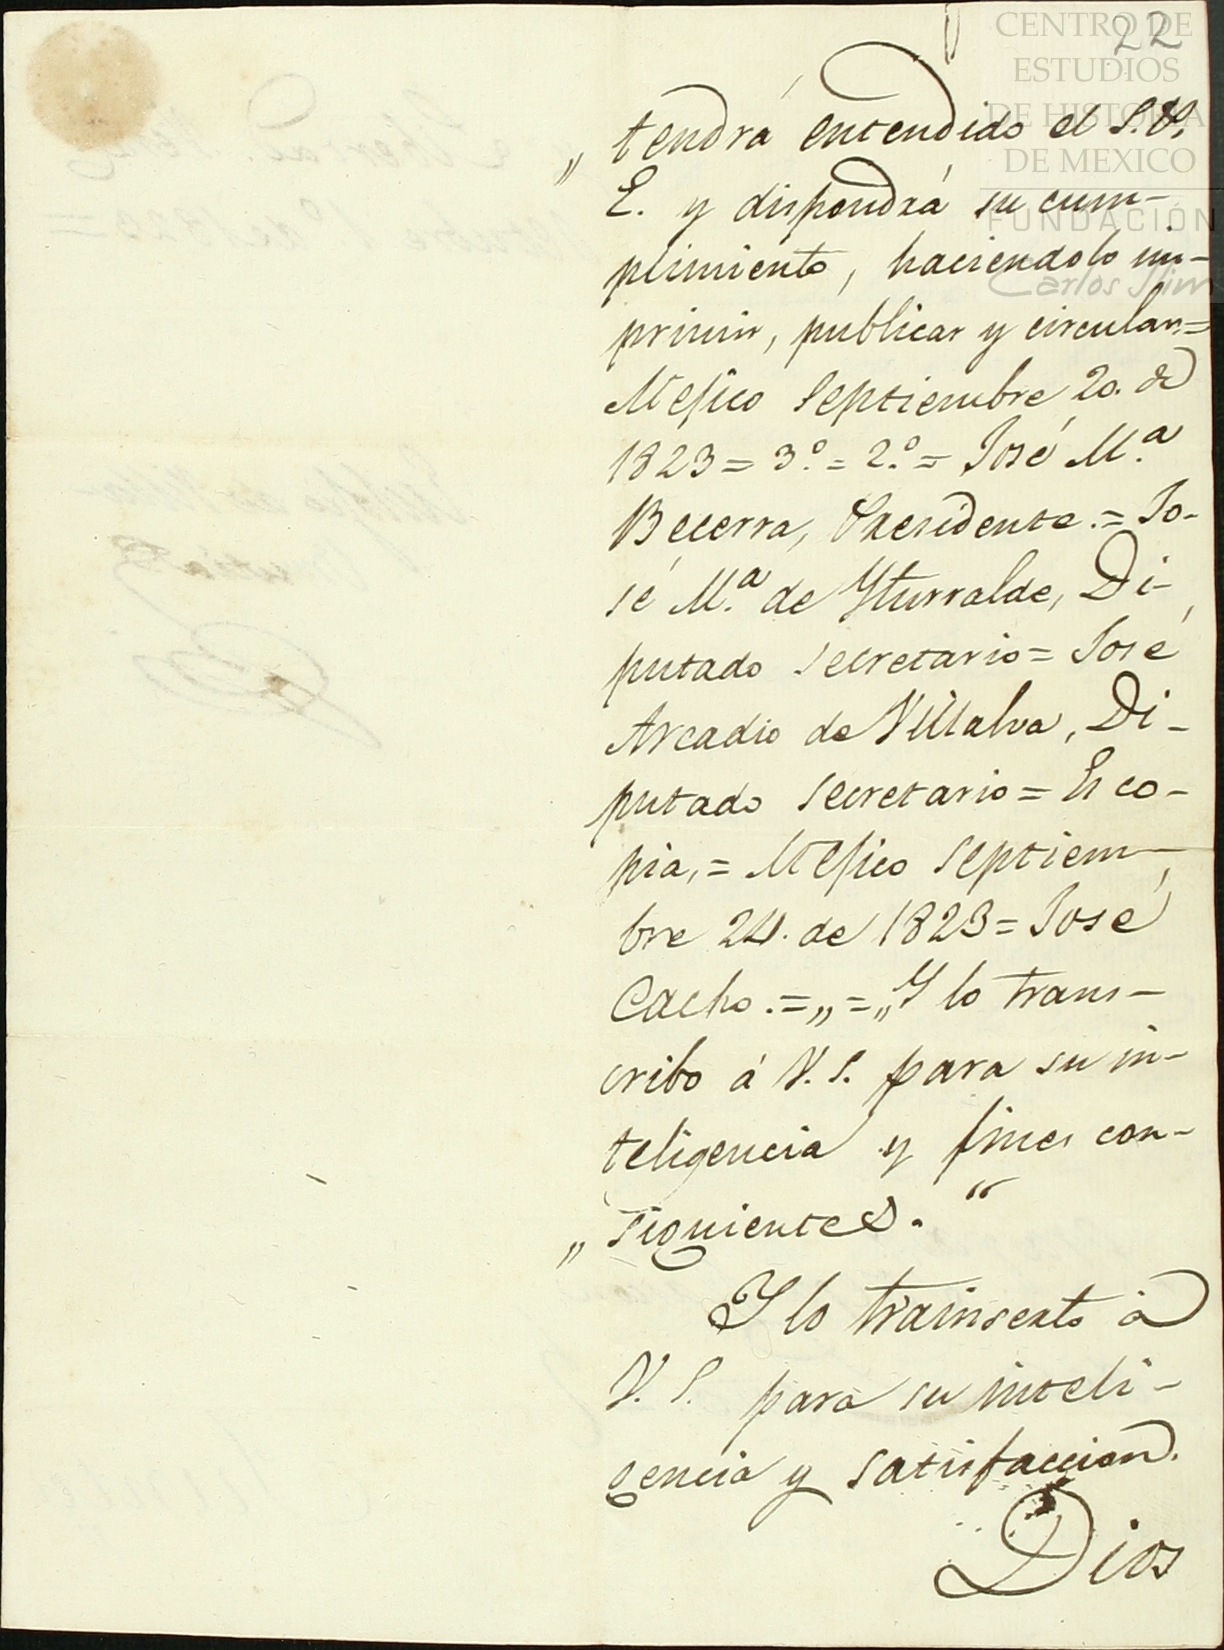 22
CENTRO DE
ESTUDIOS
DE HISTORIA
DE MEXICO
FUNDACIÓN
Carlos Slim
„ tendrá entendido el S. P.
E. y dispondrá su cum-
plimiento, haciendolo im-
primir, publicar y circular=
Mejico Septiembre 20. de
1823 = 3.º = 2.º = José M.ª
Becerra, Presidente. = Jo-
sé M.ª de Yturralde, Di-
putado secretario = José
Arcadio de Villalva, Di-
putado secretario = Es co-
pia, = Mejico Septiem-
bre 24. de 1823 = José
Cacho. = „ = „ Y lo trans-
cribo á V. S. para su in-
teligencia y fines con-
„ siguientes. “
Y lo trainserto á
V. S. para su inteli-
gencia y satisfaccion.
Dios